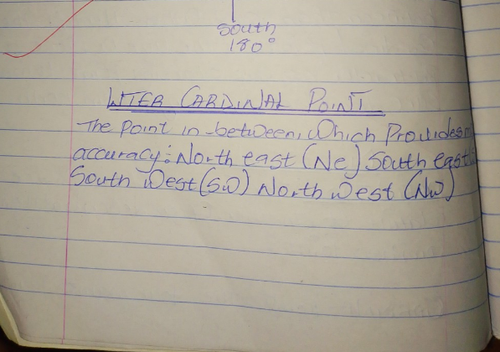 South
180°
INTER CARDINAL POINT
The Point in-between, Which Provides
accuracy: North east (Ne) South east
South West (S.W) North West (NW)